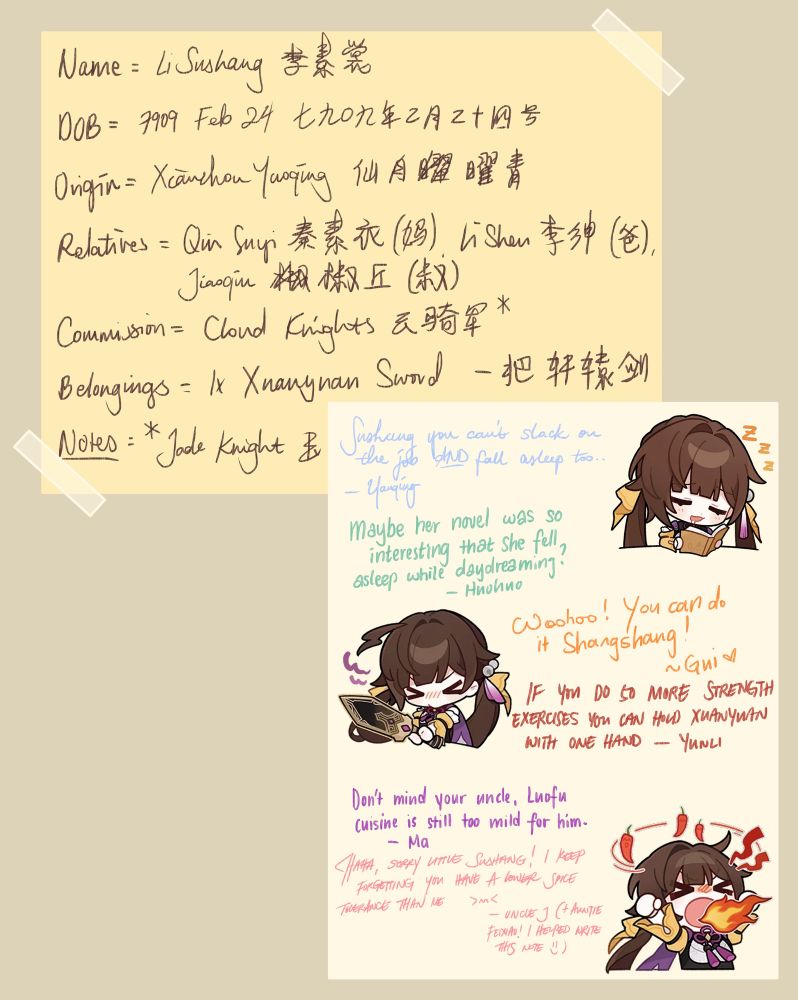 Name = Li Sushang 李素裳
DOB = 7909 Feb 24 七九〇九年二月二十四号
Origin = Xianzhou Yaoqing 仙舟 曜青
Relatives = Qin Suyi 秦素衣 (妈), Li Shen 李绅 (爸),
Jiaoqiu 椒丘 (叔)
Commission = Cloud Knights 云骑军*
Belongings = 1x Xuanyuan Sword 一把 轩辕剑
Notes: *Jade Knight 玉
Sushang you can't slack on
the job AND fall asleep too..
— Yanqing
Maybe her novel was so
interesting that she fell
asleep while daydreaming?
— Huohuo
Z z z
Woohoo! You can do
it Shangshang!
~Gui ♡
IF YOU DO 50 MORE STRENGTH
EXERCISES YOU CAN HOLD XUANYUAN
WITH ONE HAND — YUNLI
Don't mind your uncle, Luofu
cuisine is still too mild for him.
— Ma
HAHA, SORRY LITTLE SUSHANG! I KEEP
FORGETTING YOU HAVE A LOWER SPICE
TOLERANCE THAN ME >m<
— UNCLE J (+ AUNTIE
FEIXIAO! I HELPED WRITE
THIS NOTE :))